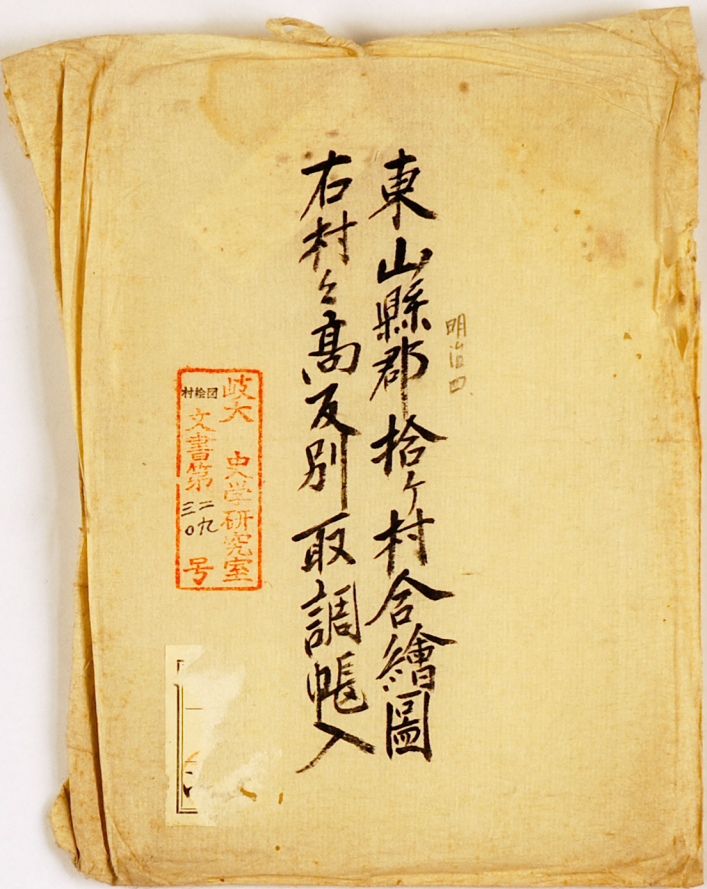 明治四
東山縣郡拾ケ村合繪圖
右村々髙反別取調帳入
岐大 史学研究室
村絵図
文書第 号
二九
三〇